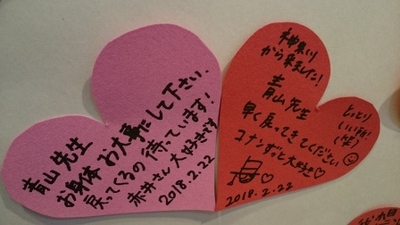 青山先生
お身体お大事にして下さい。
戻ってくるの待っています!
赤井さん大好きです
2018.2.22
神奈川
から来ました!
青山先生
早く戻ってきてください
コナンずっと大好き♡
2018.2.22
とっとり
いいトコ!